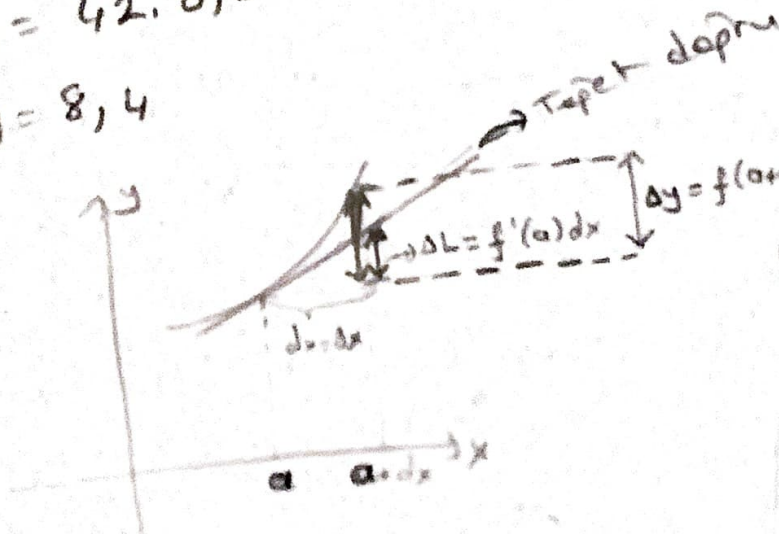 = 42.
= 8, 4
y
Teğet doğru
Δy = f(a+
→ΔL = f'(a)dx
dx = Δx
x
a
a+dx